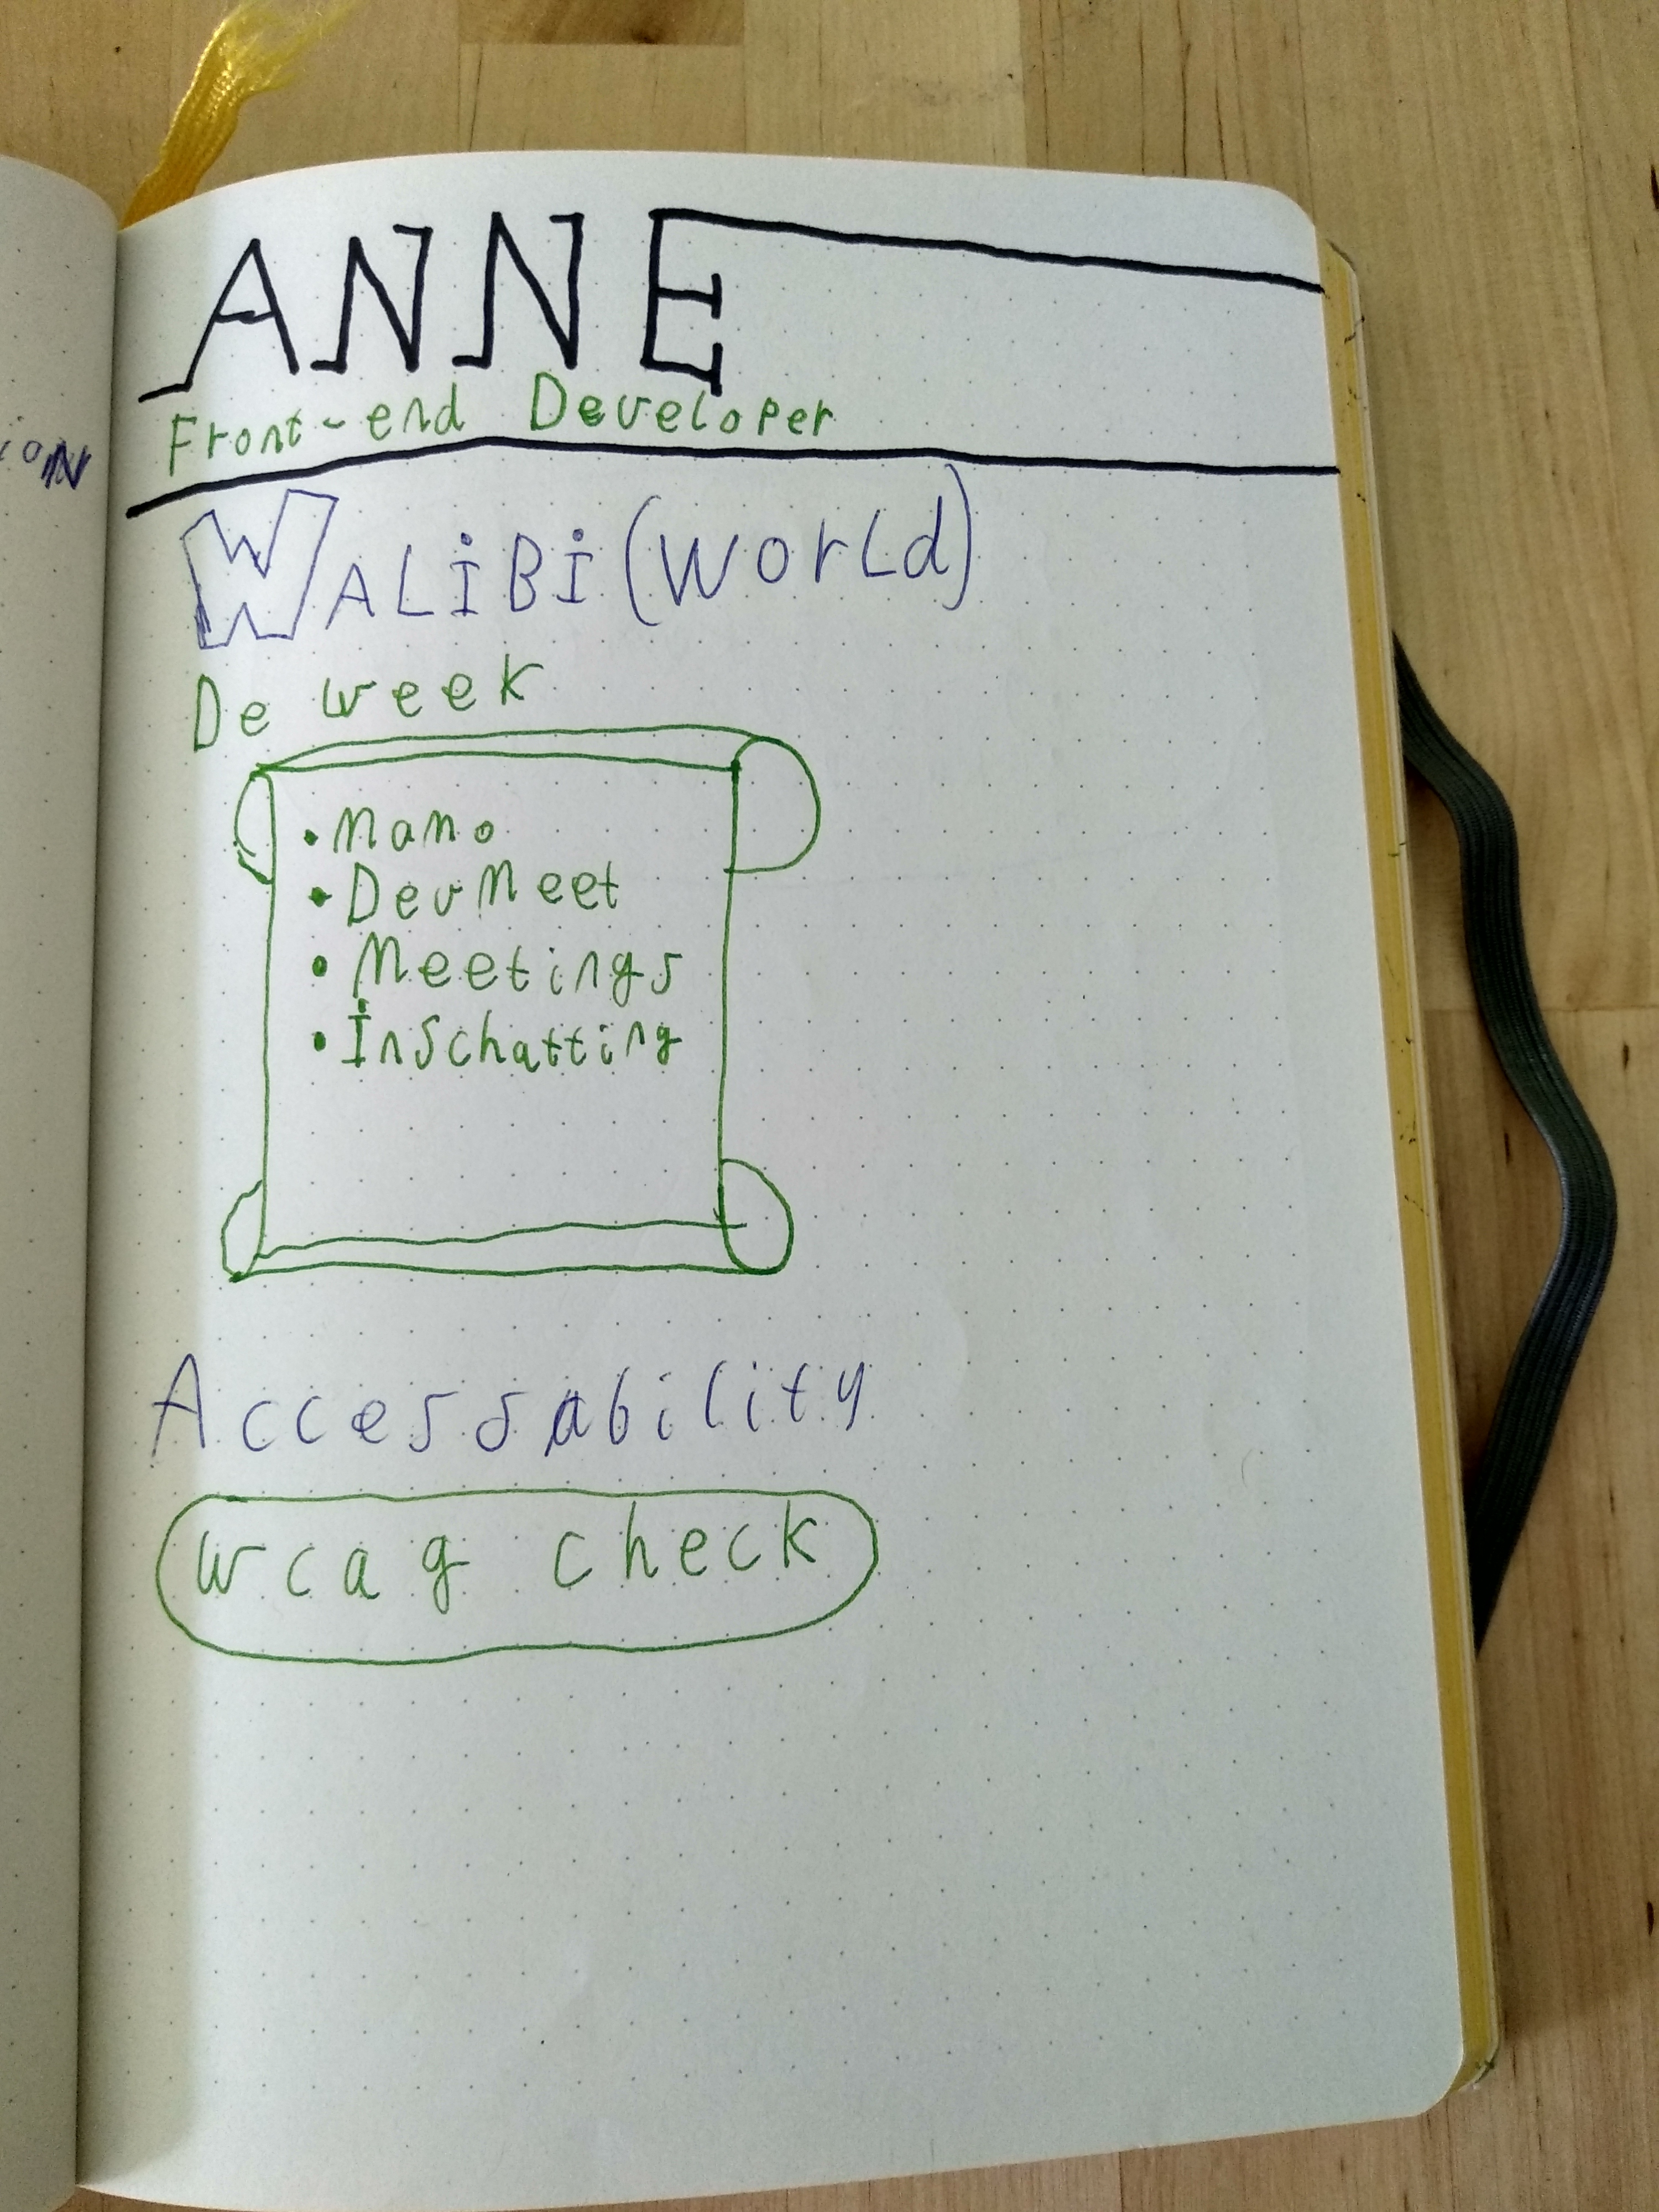 ANNE
Front-end Developer
WALiBi (World)
De week
• MaMo
• DevMeet
• Meetings
• InSchatting
Accessability
wcag check